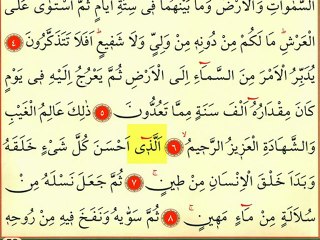 السَّمٰوَاتِ وَالْاَرْضَ وَمَا بَيْنَهُمَا ف۪ي سِتَّةِ اَيَّامٍ ثُمَّ اسْتَوٰى عَلَى
الْعَرْشِۜ مَا لَكُمْ مِنْ دُونِه۪ مِنْ وَلِيٍّ وَلَا شَف۪يعٍۜ اَفَلَا تَتَذَكَّرُونَ ﴿٤﴾
يُدَبِّرُ الْاَمْرَ مِنَ السَّمَٓاءِ اِلَى الْاَرْضِ ثُمَّ يَعْرُجُ اِلَيْهِ ف۪ي يَوْمٍ
كَانَ مِقْدَارُهُٓ اَلْفَ سَنَةٍ مِمَّا تَعُدُّونَ ﴿٥﴾ ذٰلِكَ عَالِمُ الْغَيْبِ
وَالشَّهَادَةِ الْعَز۪يزُ الرَّح۪يمُۙ ﴿٦﴾ اَلَّذ۪ٓي اَحْسَنَ كُلَّ شَيْءٍ خَلَقَهُ
وَبَدَاَ خَلْقَ الْاِنْسَانِ مِنْ ط۪ينٍۚ ﴿٧﴾ ثُمَّ جَعَلَ نَسْلَهُ مِنْ
سُلَالَةٍ مِنْ مَٓاءٍ مَه۪ينٍۚ ﴿٨﴾ ثُمَّ سَوّٰيهُ وَنَفَخَ ف۪يهِ مِنْ رُوحِه۪